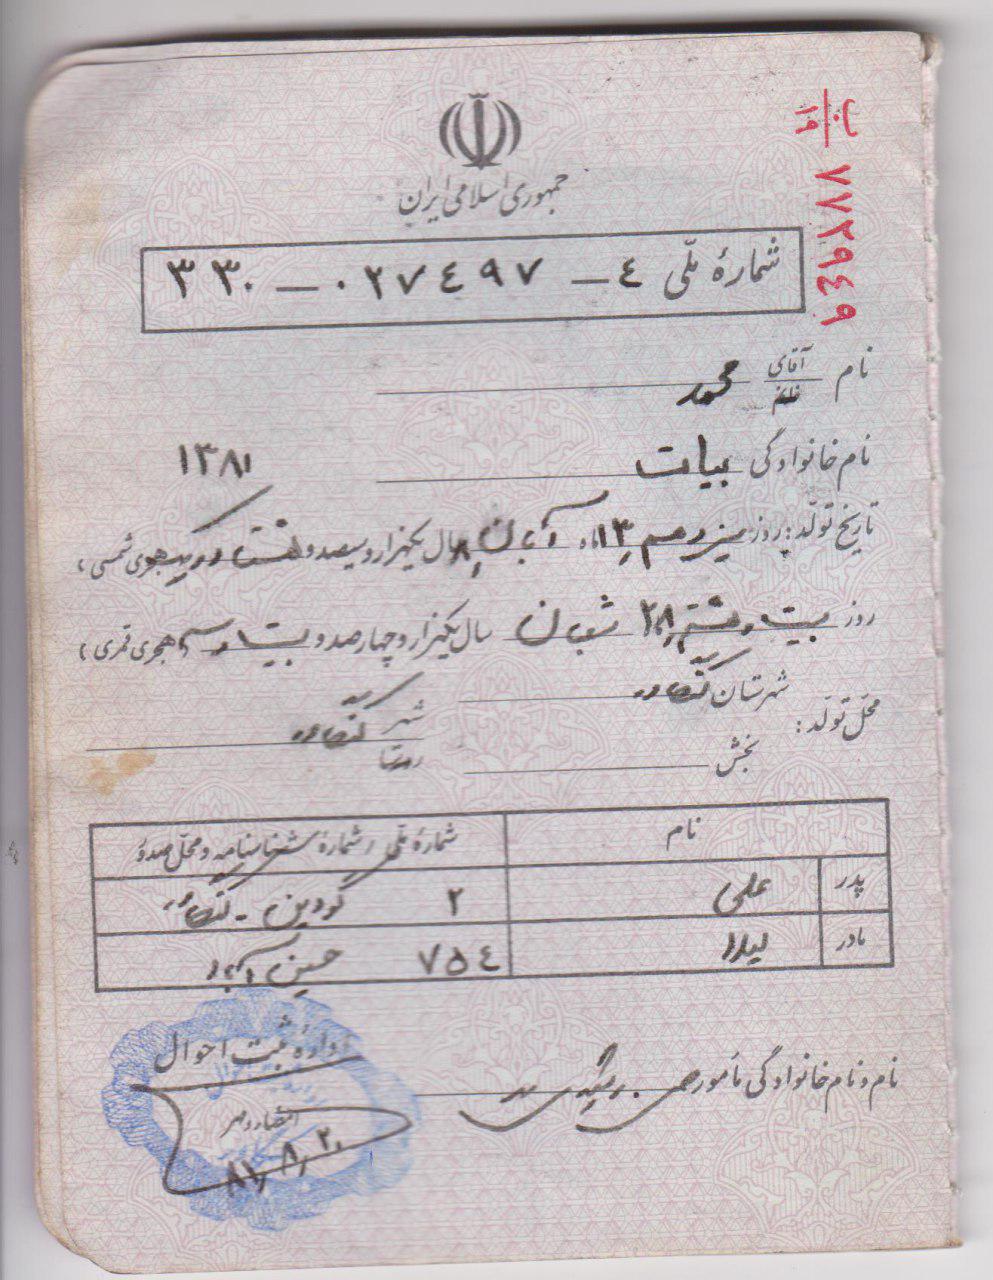 جمهوری اسلامی ایران
ب/۱۹ ۷۷۲۹۴۹
شمارهٔ ملّی ۴ – ۰۲۷۴۹۷ – ۳۳۰
نام آقای محمد
نام خانوادگی بیات
۱۳۸۱
تاریخ تولّد: روز سیزدهم ۱۳ ماه آبان ۸ سال یکهزار و سیصد و هشتاد و یک هجری شمسی،
روز بیست و هشتم ۲۸ شعبان سال یکهزار و چهارصد و بیست و سه هجری قمری،
محل تولّد: شهرستان کنگاور شهر کنگاور
بخش روستا
نام شمارهٔ ملّی / شمارهٔ شناسنامه و محل صدور
پدر علی ۲ گودین - کنگاور
مادر لیلا ۷۵۴ حسین آباد
نام و نام خانوادگی مأمور
ادارهٔ ثبت احوال
امضاء و مهر
۸۱٫۸٫۲۰